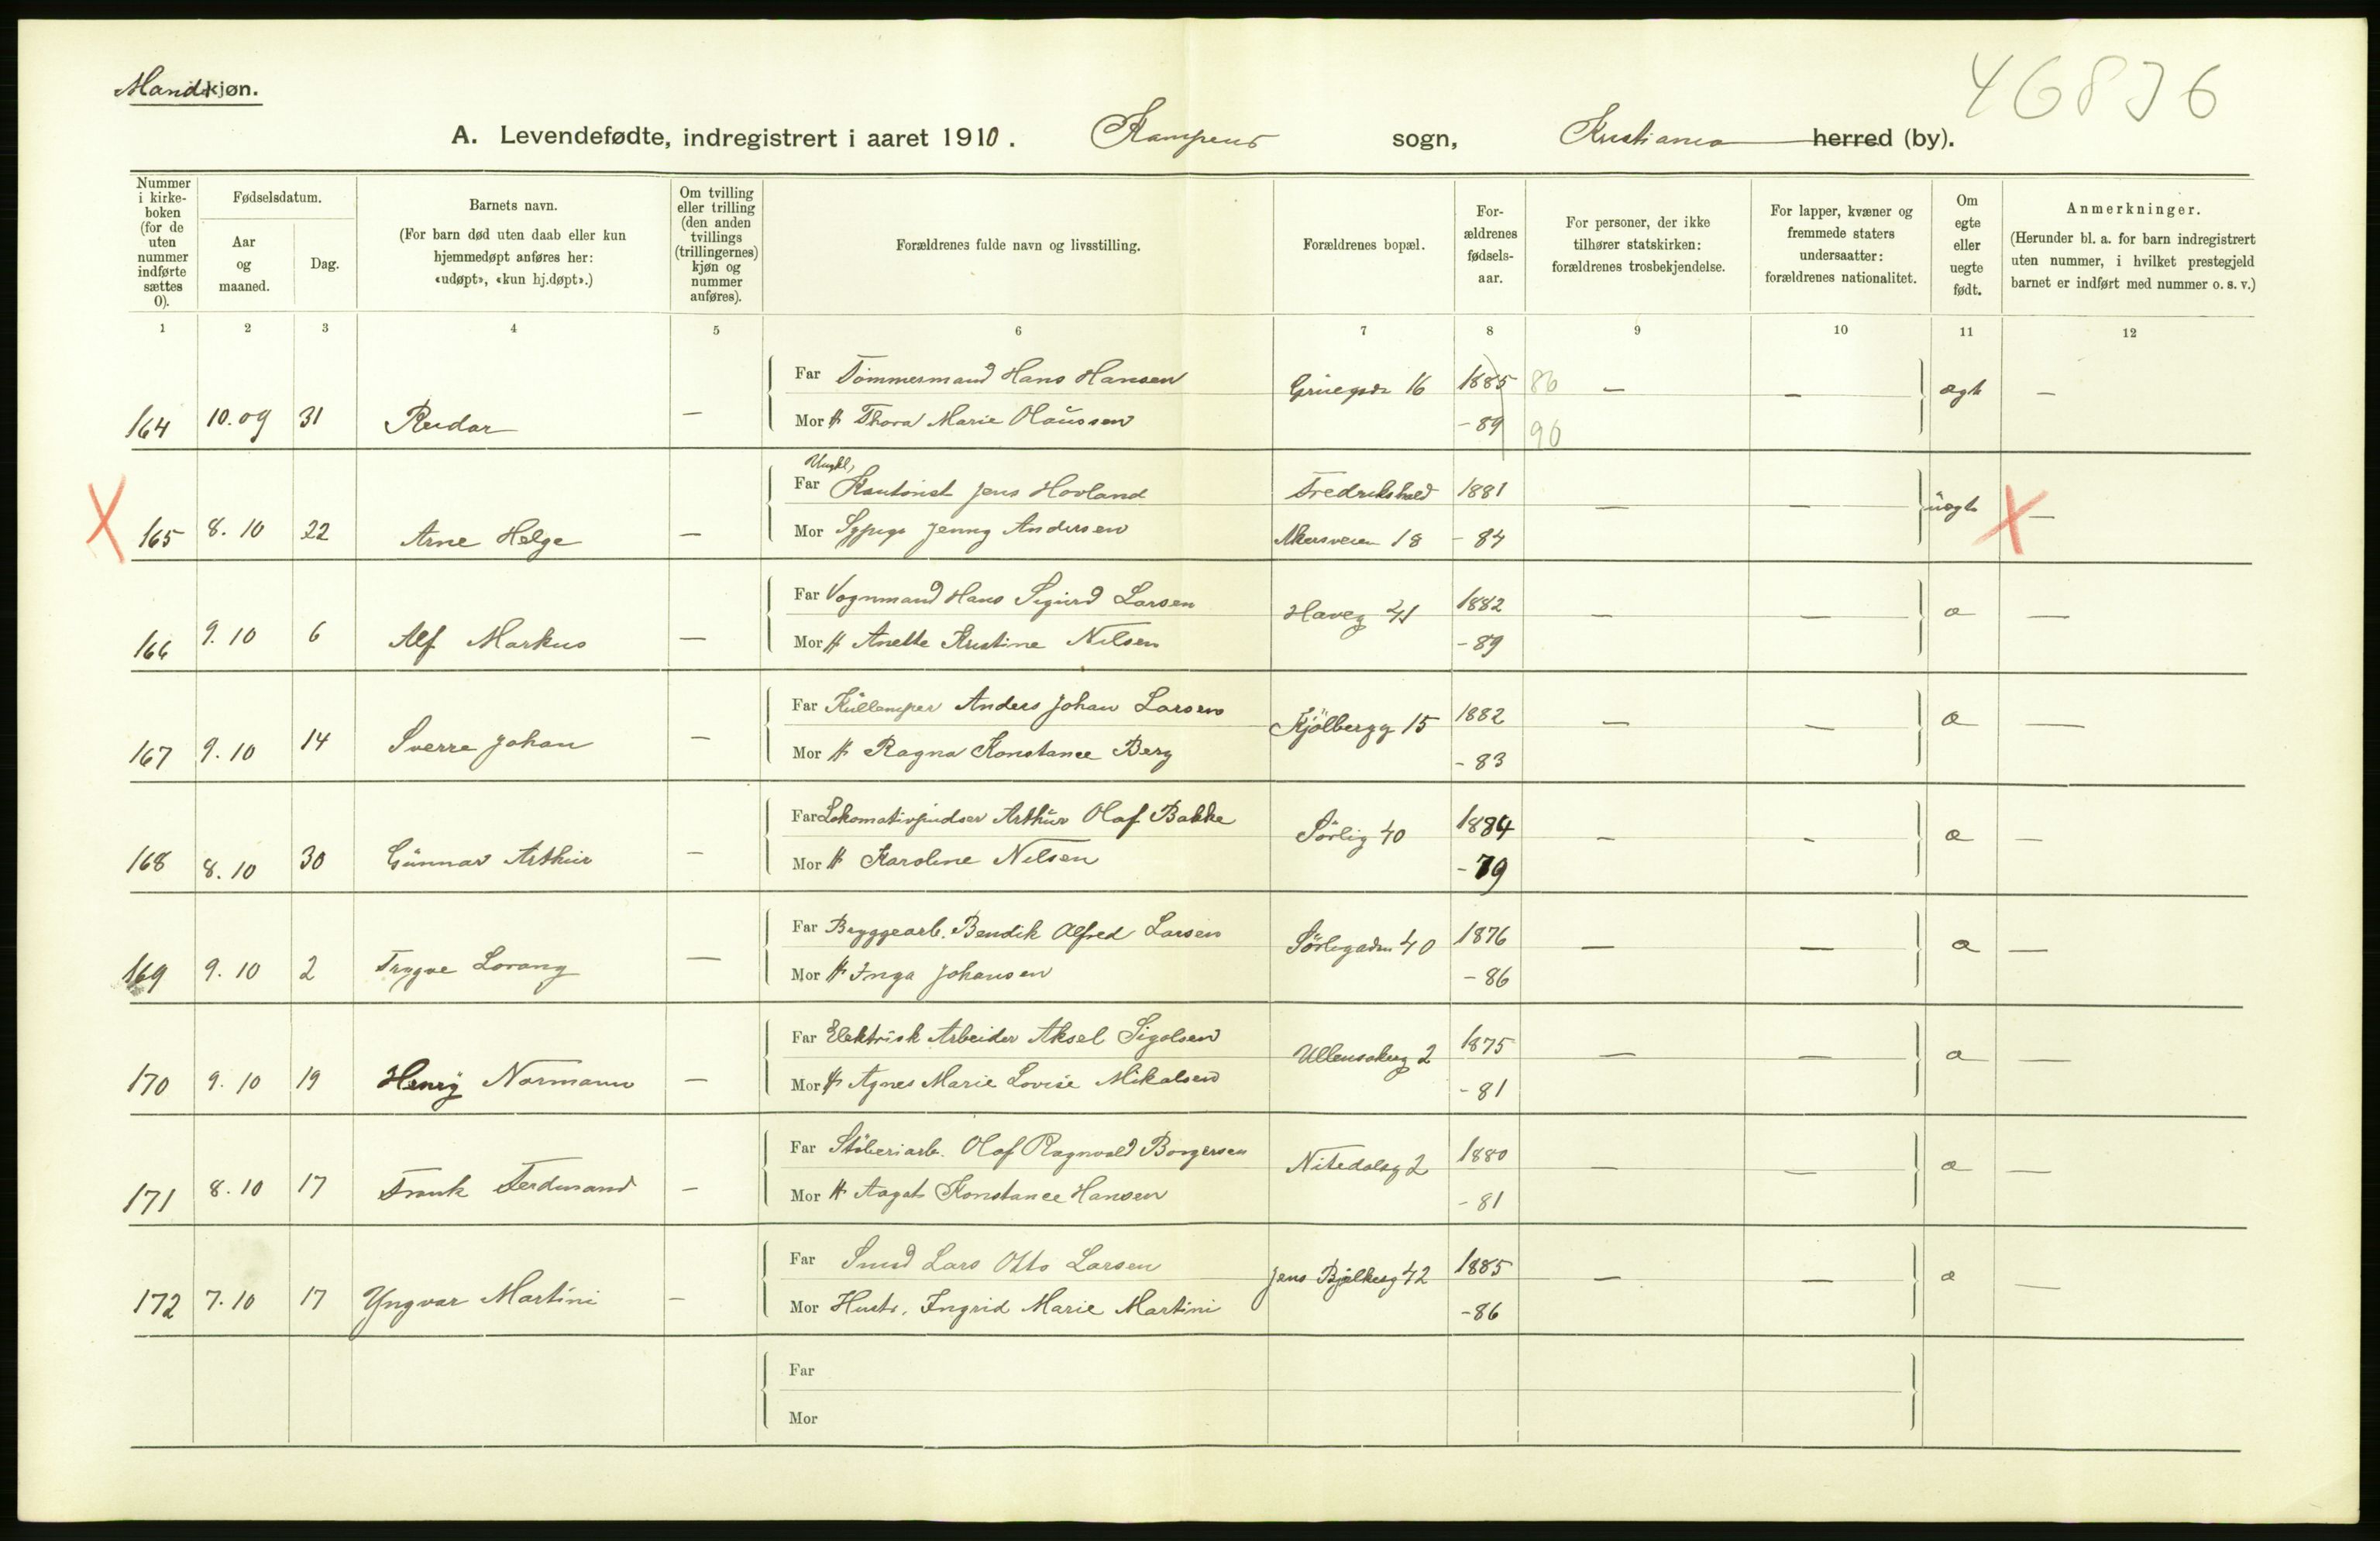 46836
Mandkjøn.
A. Levendefødte, indregistrert i aaret 1910. Kampens sogn, Kristiania herred (by).
Nummer i kirke-boken (for de uten nummer indførte sættes 0).
Fødselsdatum.
Aar og maaned.
Dag.
Barnets navn.
(For barn død uten daab eller kun hjemmedøpt anføres her: «udøpt», «kun hj.døpt».)
Om tvilling eller trilling (den anden tvillings (trillingernes) kjøn og nummer anføres).
Forældrenes fulde navn og livsstilling.
Forældrenes bopæl.
For-ældrenes fødsels-aar.
For personer, der ikke tilhører statskirken: forældrenes trosbekjendelse.
For lapper, kvæner og fremmede staters undersaatter: forældrenes nationalitet.
Om egte eller uegte født.
Anmerkninger.
(Herunder bl. a. for barn indregistrert uten nummer, i hvilket prestegjeld barnet er indført med nummer o. s. v.)
1 2 3 4 5 6 7 8 9 10 11 12
Far Tömmermand Hans Hansen Gruegdn 16 1885 86 — — ægt —
164 10.09 31 Reidar — Mor H Thora Marie Olaussen - 89 90
Ungkl,
Far Kontorist Jens Hovland Fredrikshald 1881 — — uægt —
X 165 8.10 22 Arne Helge — Mor Sypige Jenny Andersen Akersveien 18 - 84 X
Far Vognmand Hans Sigurd Larsen Haveg 41 1882 — — æ —
166 9.10 6 Alf Markus — Mor H Anette Kristine Nilsen - 89
Far Kullemper Anders Johan Larsen Kjölbergg 15 1882 — — æ —
167 9.10 14 Sverre Johan — Mor H Ragna Konstance Berg - 83
Far Lokomativpudser Arthur Olaf Bakke Sörlig 40 1884 — — æ —
168 8.10 30 Gunnar Arthur — Mor H Karoline Nilsen - 79
Far Bryggearb. Bendik Alfred Larsen Sörligaden 40 1876 — — æ —
169 9.10 2 Trygve Lorang — Mor H Inga Johansen - 86
Far Elektrisk Arbeider Aksel Sigolsen Ullensakerg 2 1875 — — æ —
170 9.10 19 Henry Normann — Mor H Agnes Marie Lovise Mikalsen - 81
Far Stöberiarb. Olaf Ragnvald Borgersen Nitedalsg 2 1880 — — æ —
171 8.10 17 Frank Ferdinand — Mor H Aagat Konstance Hansen - 81
Far Smed Lars Otto Larsen Jens Bjelkesg 42 1885 — — æ —
172 7.10 17 Yngvar Martini — Mor Hustr. Ingrid Marie Martini - 86
Far
Mor